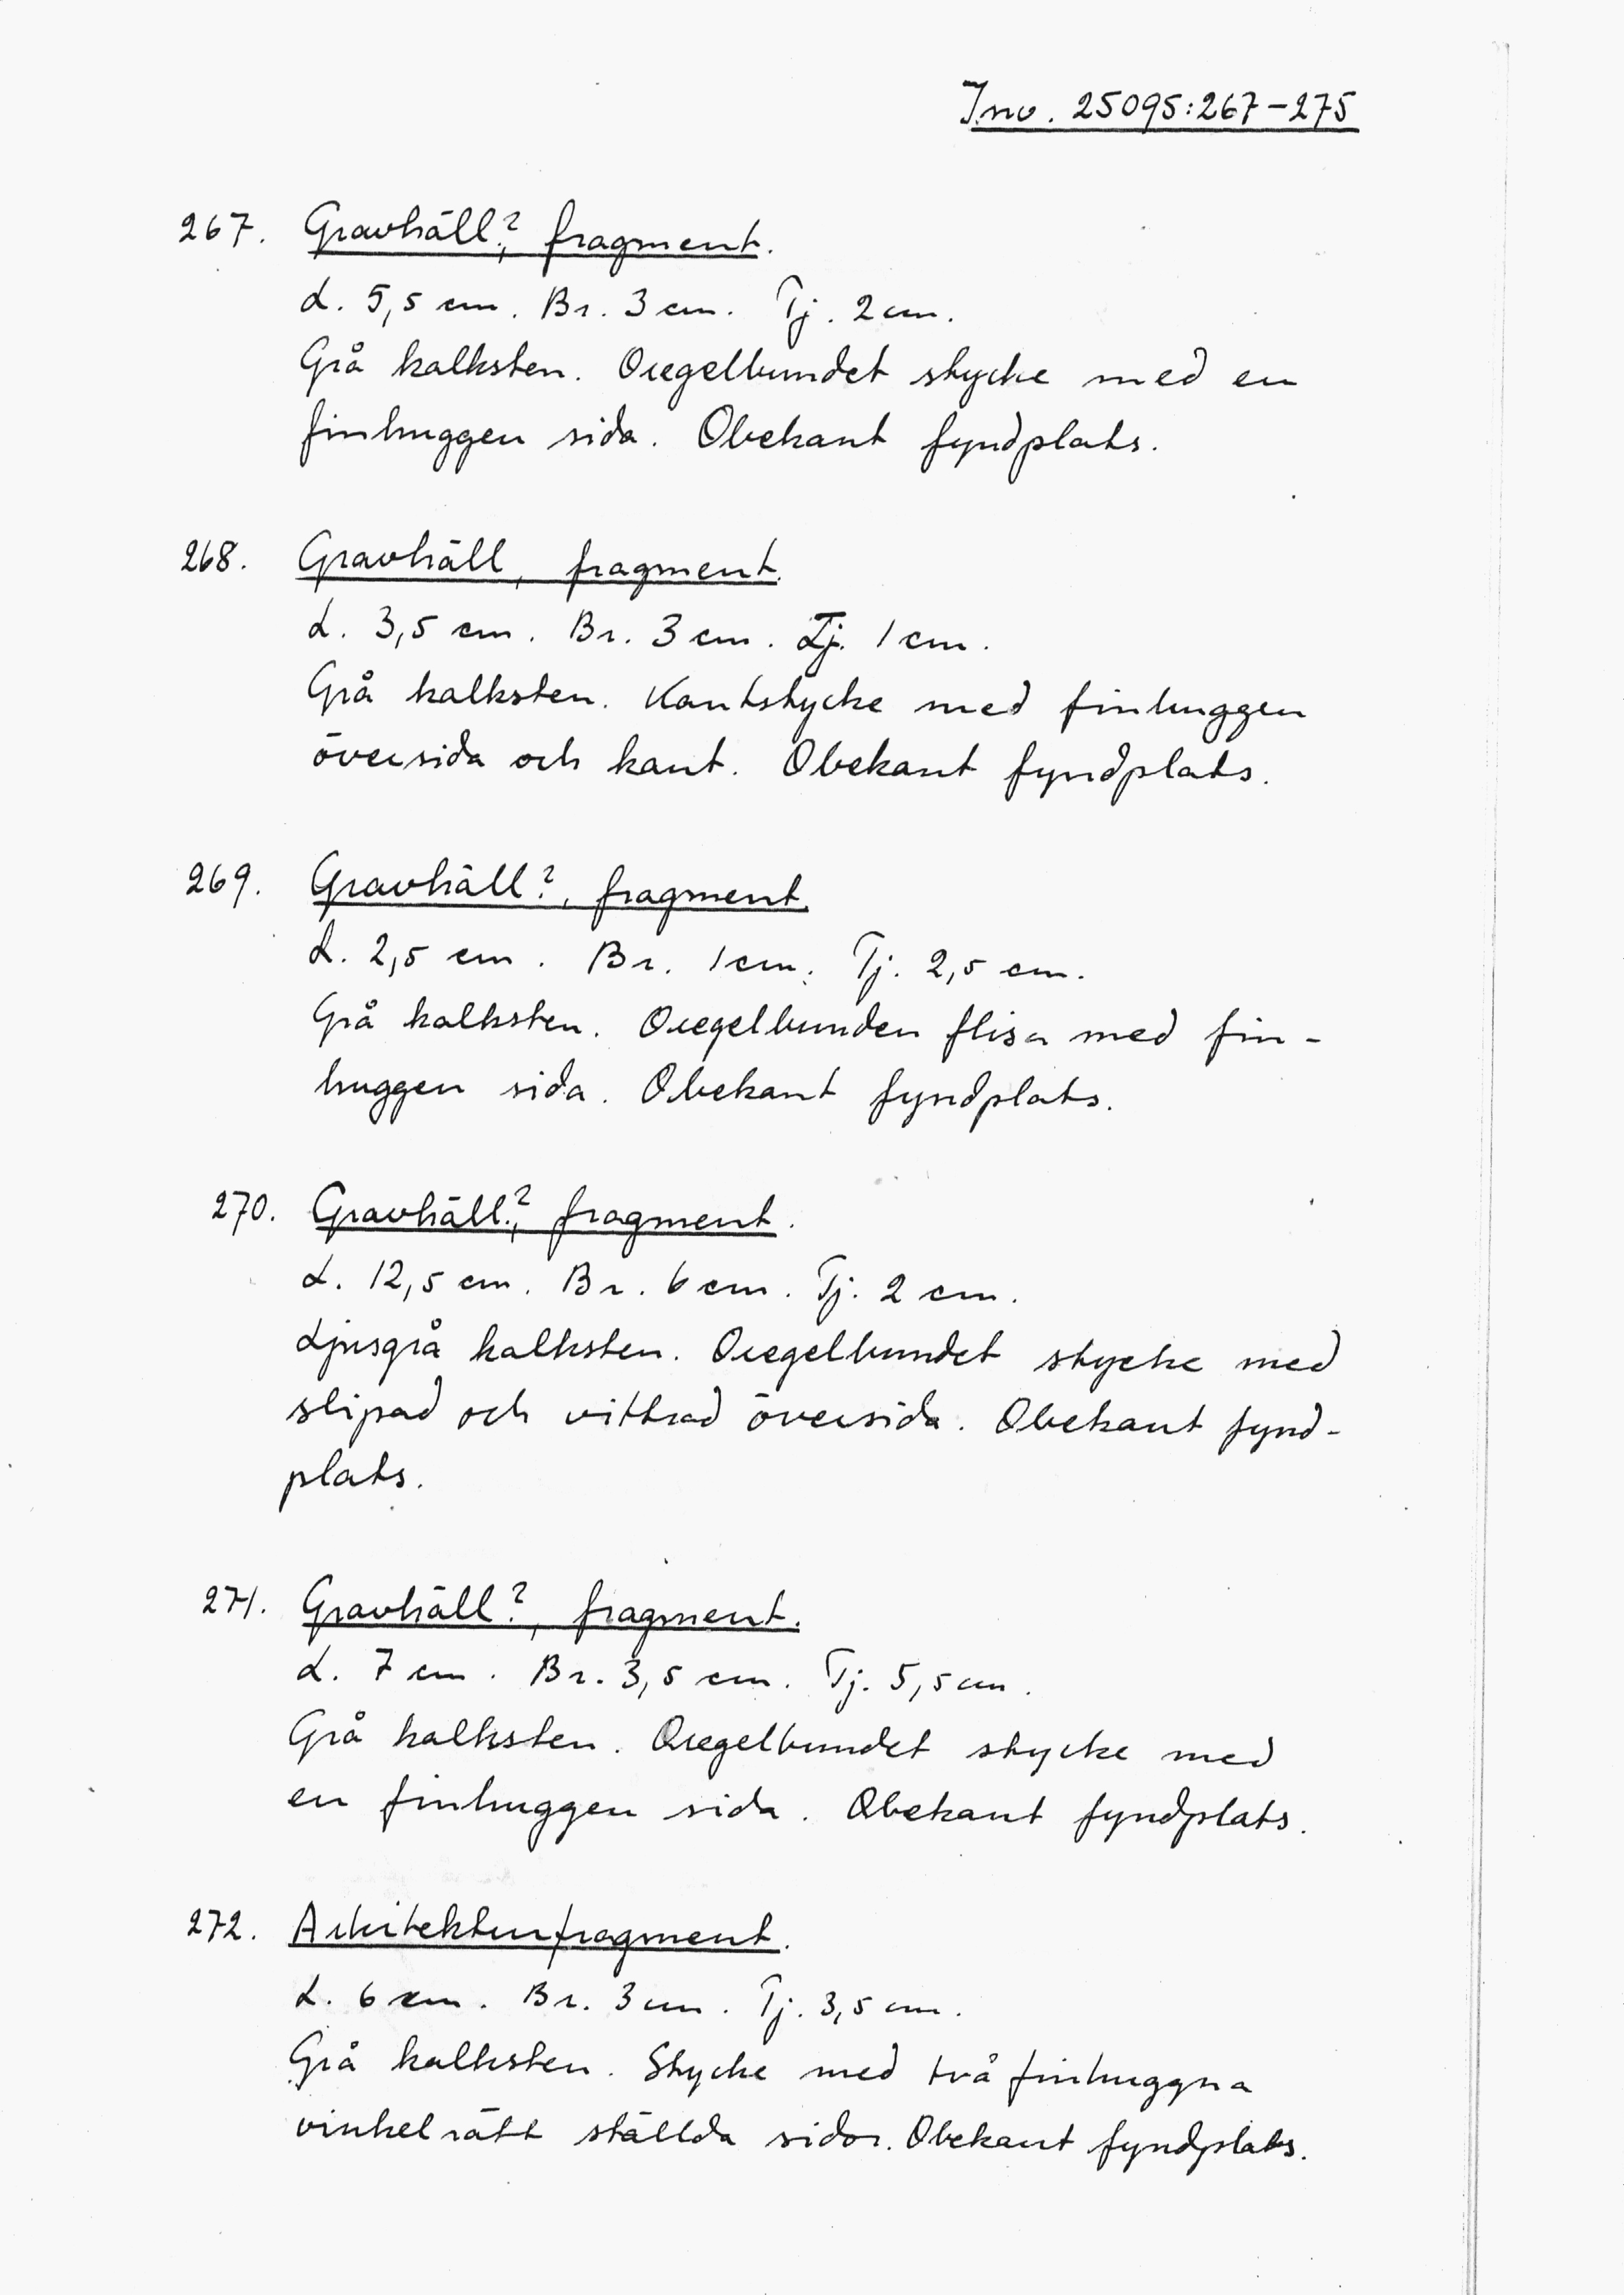 Inv. 25095:267-275
267. Gravhäll?, fragment.
L. 5,5 cm. Br. 3 cm. Tj. 2 cm.
Grå kalksten. Oregelbundet stycke med en
finhuggen sida. Obekant fyndplats.
268. Gravhäll, fragment.
L. 3,5 cm. Br. 3 cm. Tj. 1 cm.
Grå kalksten. Kantstycke med finhuggen
översida och kant. Obekant fyndplats.
269. Gravhäll?, fragment.
L. 2,5 cm. Br. 1 cm. Tj. 2,5 cm.
Grå kalksten. Oregelbunden flisa med fin-
huggen sida. Obekant fyndplats.
270. Gravhäll?, fragment.
L. 12,5 cm. Br. 6 cm. Tj. 2 cm.
Ljusgrå kalksten. Oregelbundet stycke med
slipad och vittrad översida. Obekant fynd-
plats.
271. Gravhäll?, fragment.
L. 7 cm. Br. 3,5 cm. Tj. 5,5 cm.
Grå kalksten. Oregelbundet stycke med
en finhuggen sida. Obekant fyndplats.
272. Arkitekturfragment.
L. 6 cm. Br. 3 cm. Tj. 3,5 cm.
Grå kalksten. Stycke med två finhuggna
vinkelrätt ställda sidor. Obekant fyndplats.